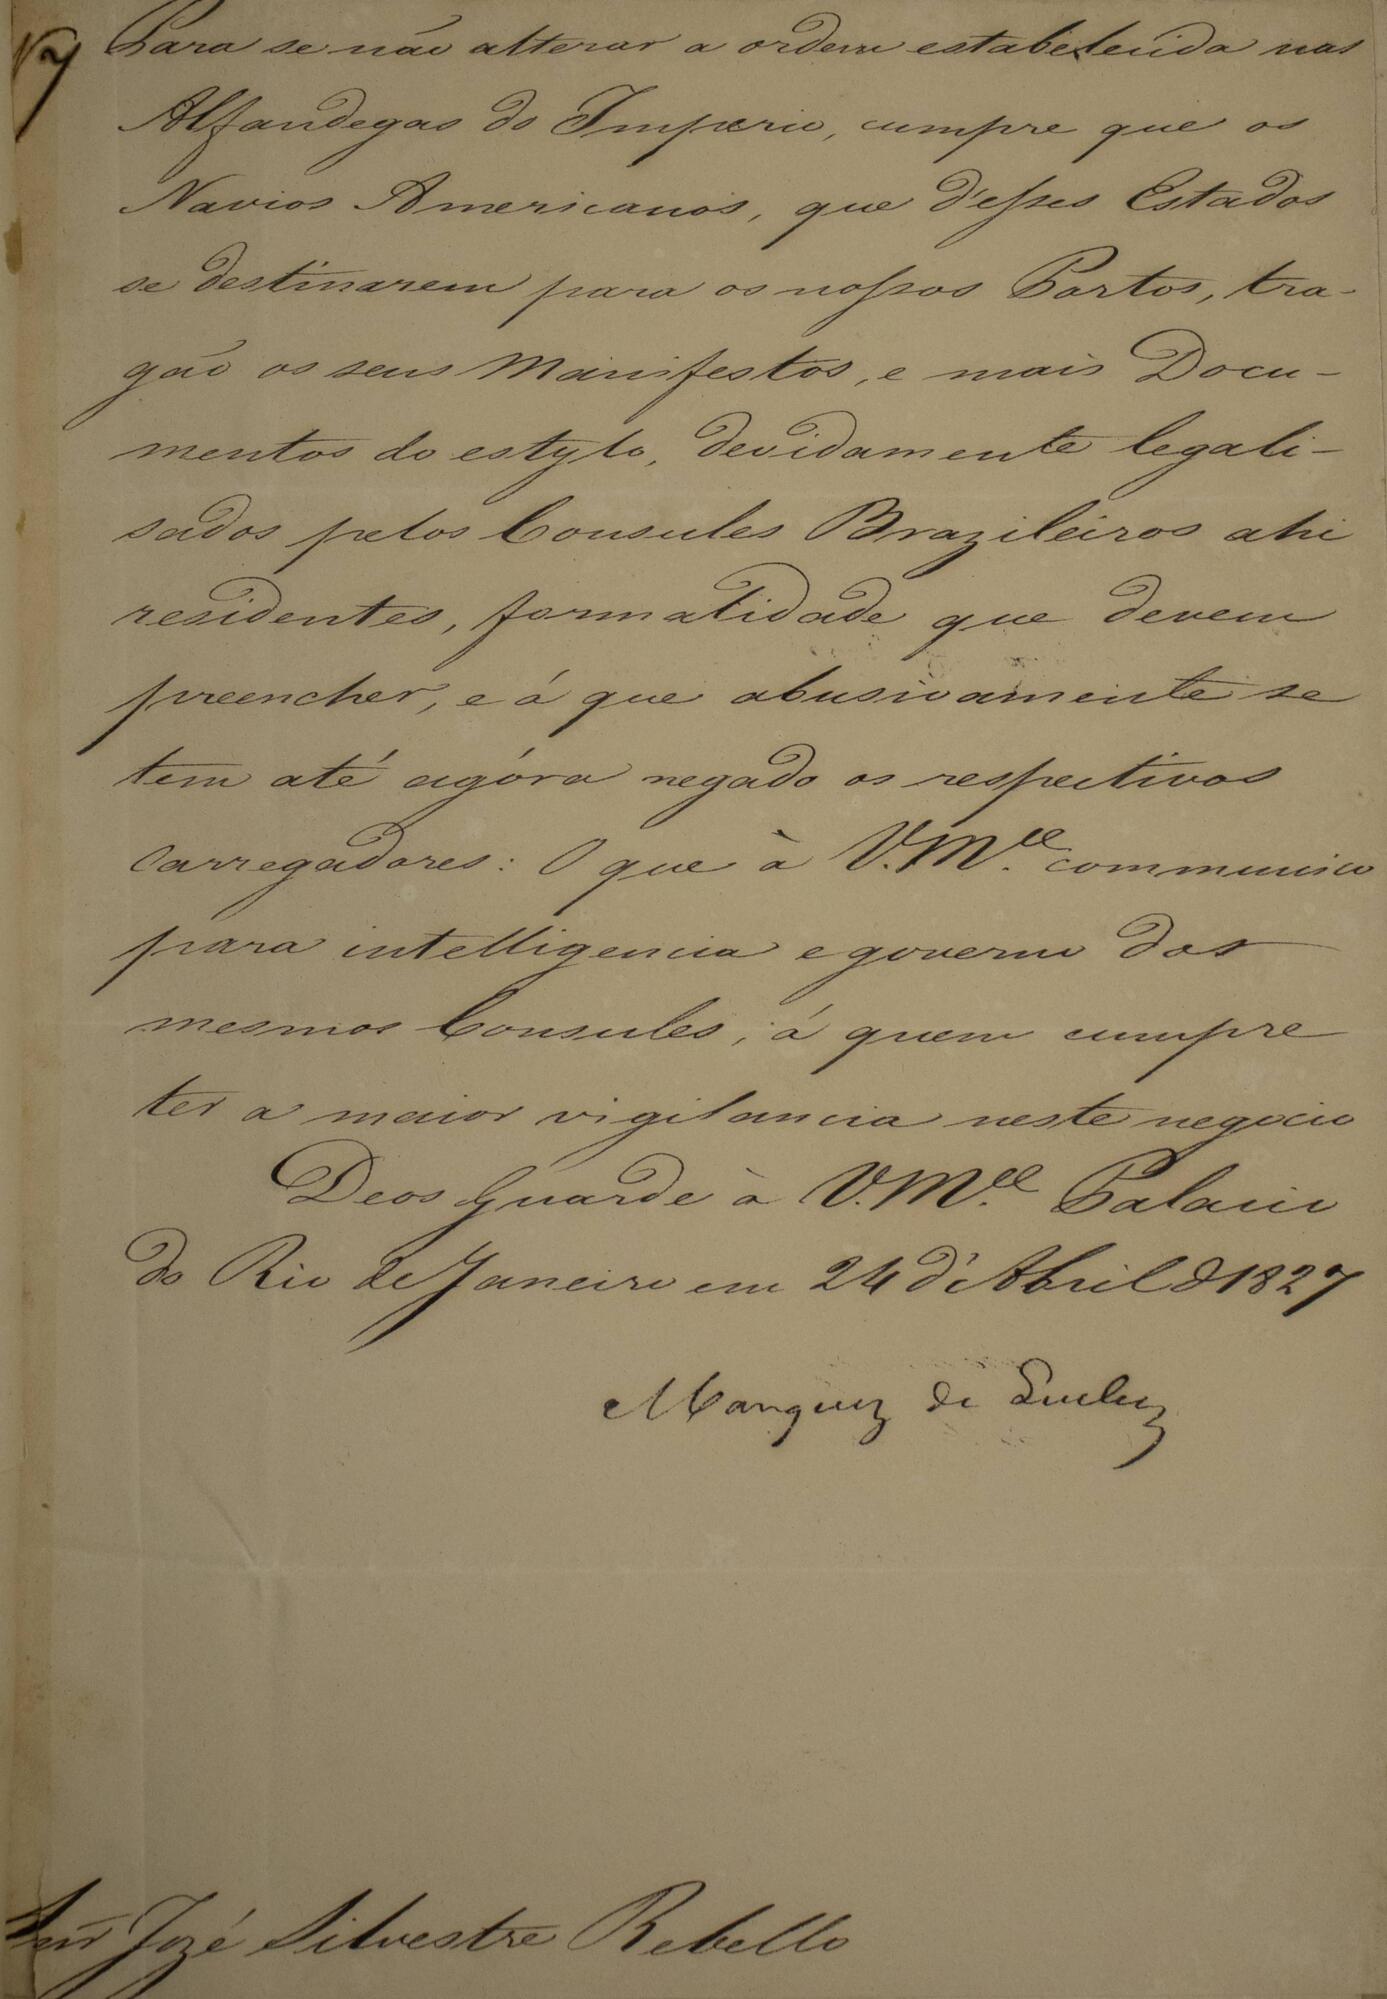 Nº 7
Para se não alterar a ordem estabelecida nas
Alfandegas do Imperio, cumpre que os
Navios Americanos, que d'esses Estados
se destinarem para os nossos Portos, tra-
gão os seus Manifestos, e mais Docu-
mentos do estylo, devidamente legali-
sados pelos Consules Brazileiros ahi
residentes, formalidade que devem
preencher, e á que abusivamente se
tem até agóra negado os respectivos
Carregadores: O que à V.M.ce communico
para intelligencia e governo dos
mesmos Consules, á quem cumpre
ter a maior vigilancia neste negocio
Deos Guarde à V.M.ce Palacio
do Rio de Janeiro em 24 d'Abril de 1827
Marquez de Queluz
Snr José Silvestre Rebello